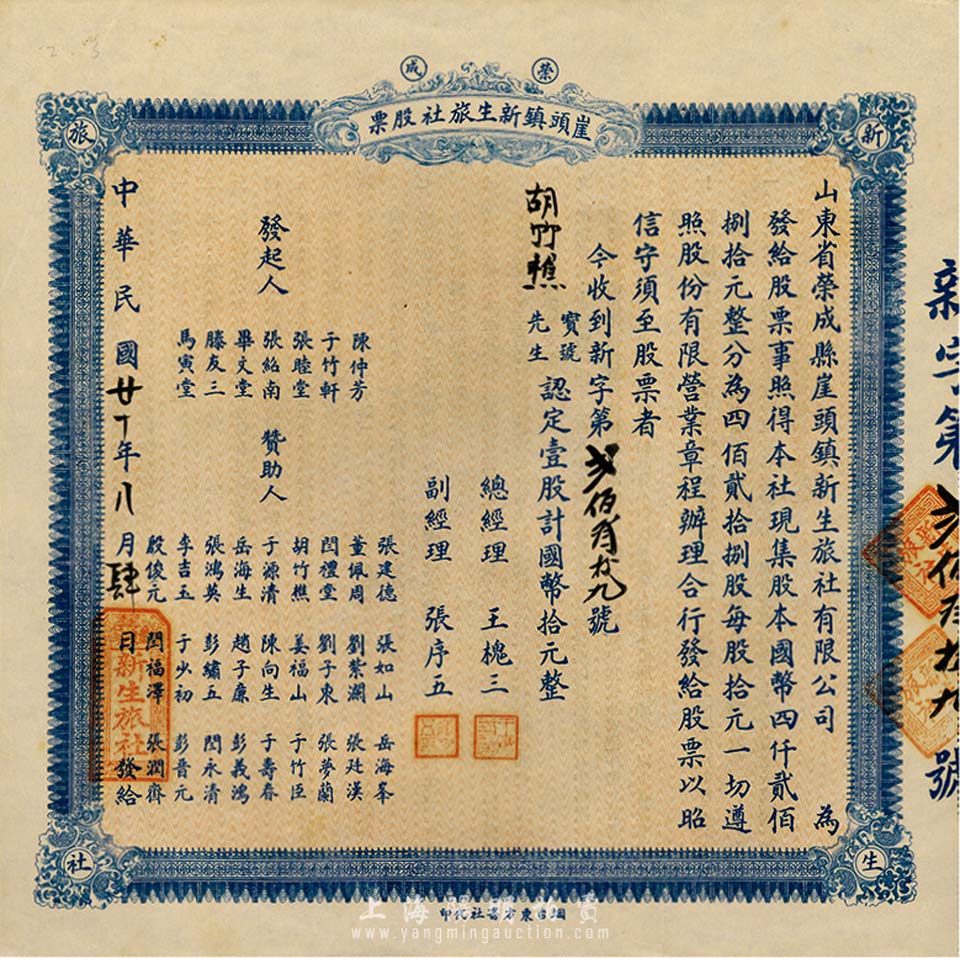 榮成
崖頭鎮新生旅社股票
新
生
旅
社
山東省榮成縣崖頭鎮新生旅社有限公司 為
發給股票事照得本社現集股本國幣四仟貳佰
捌拾元整分為四佰貳拾捌股每股拾元一切遵
照股份有限營業章程辦理合行發給股票以昭
信守須至股票者
今收到新字第貳佰 拾九號
胡竹樵 寶號 先生 認定壹股計國幣拾元整
總經理 王槐三
副經理 張序五
發起人 陳仲芳
于竹軒
張睦堂
張紹南
畢文堂
滕友三
馬寅堂
贊助人 張建德 張如山 岳海峯
董佩周 劉紫瀾 張廷漢
閆禮堂 劉子東 張夢蘭
胡竹樵 姜福山 于竹臣
于源清 陳向生 于壽春
岳海生 趙子廉 彭義鴻
張鴻英 彭繡五 閆永清
李吉玉 于少初 彭晋元
殷俊元 閆福澤 張潤齊
中華民國廿十年八月肆日發給
新生旅社
新字第貳佰 拾九號
烟台東 書社 印
上海陽明拍賣
www.yangmingauction.com